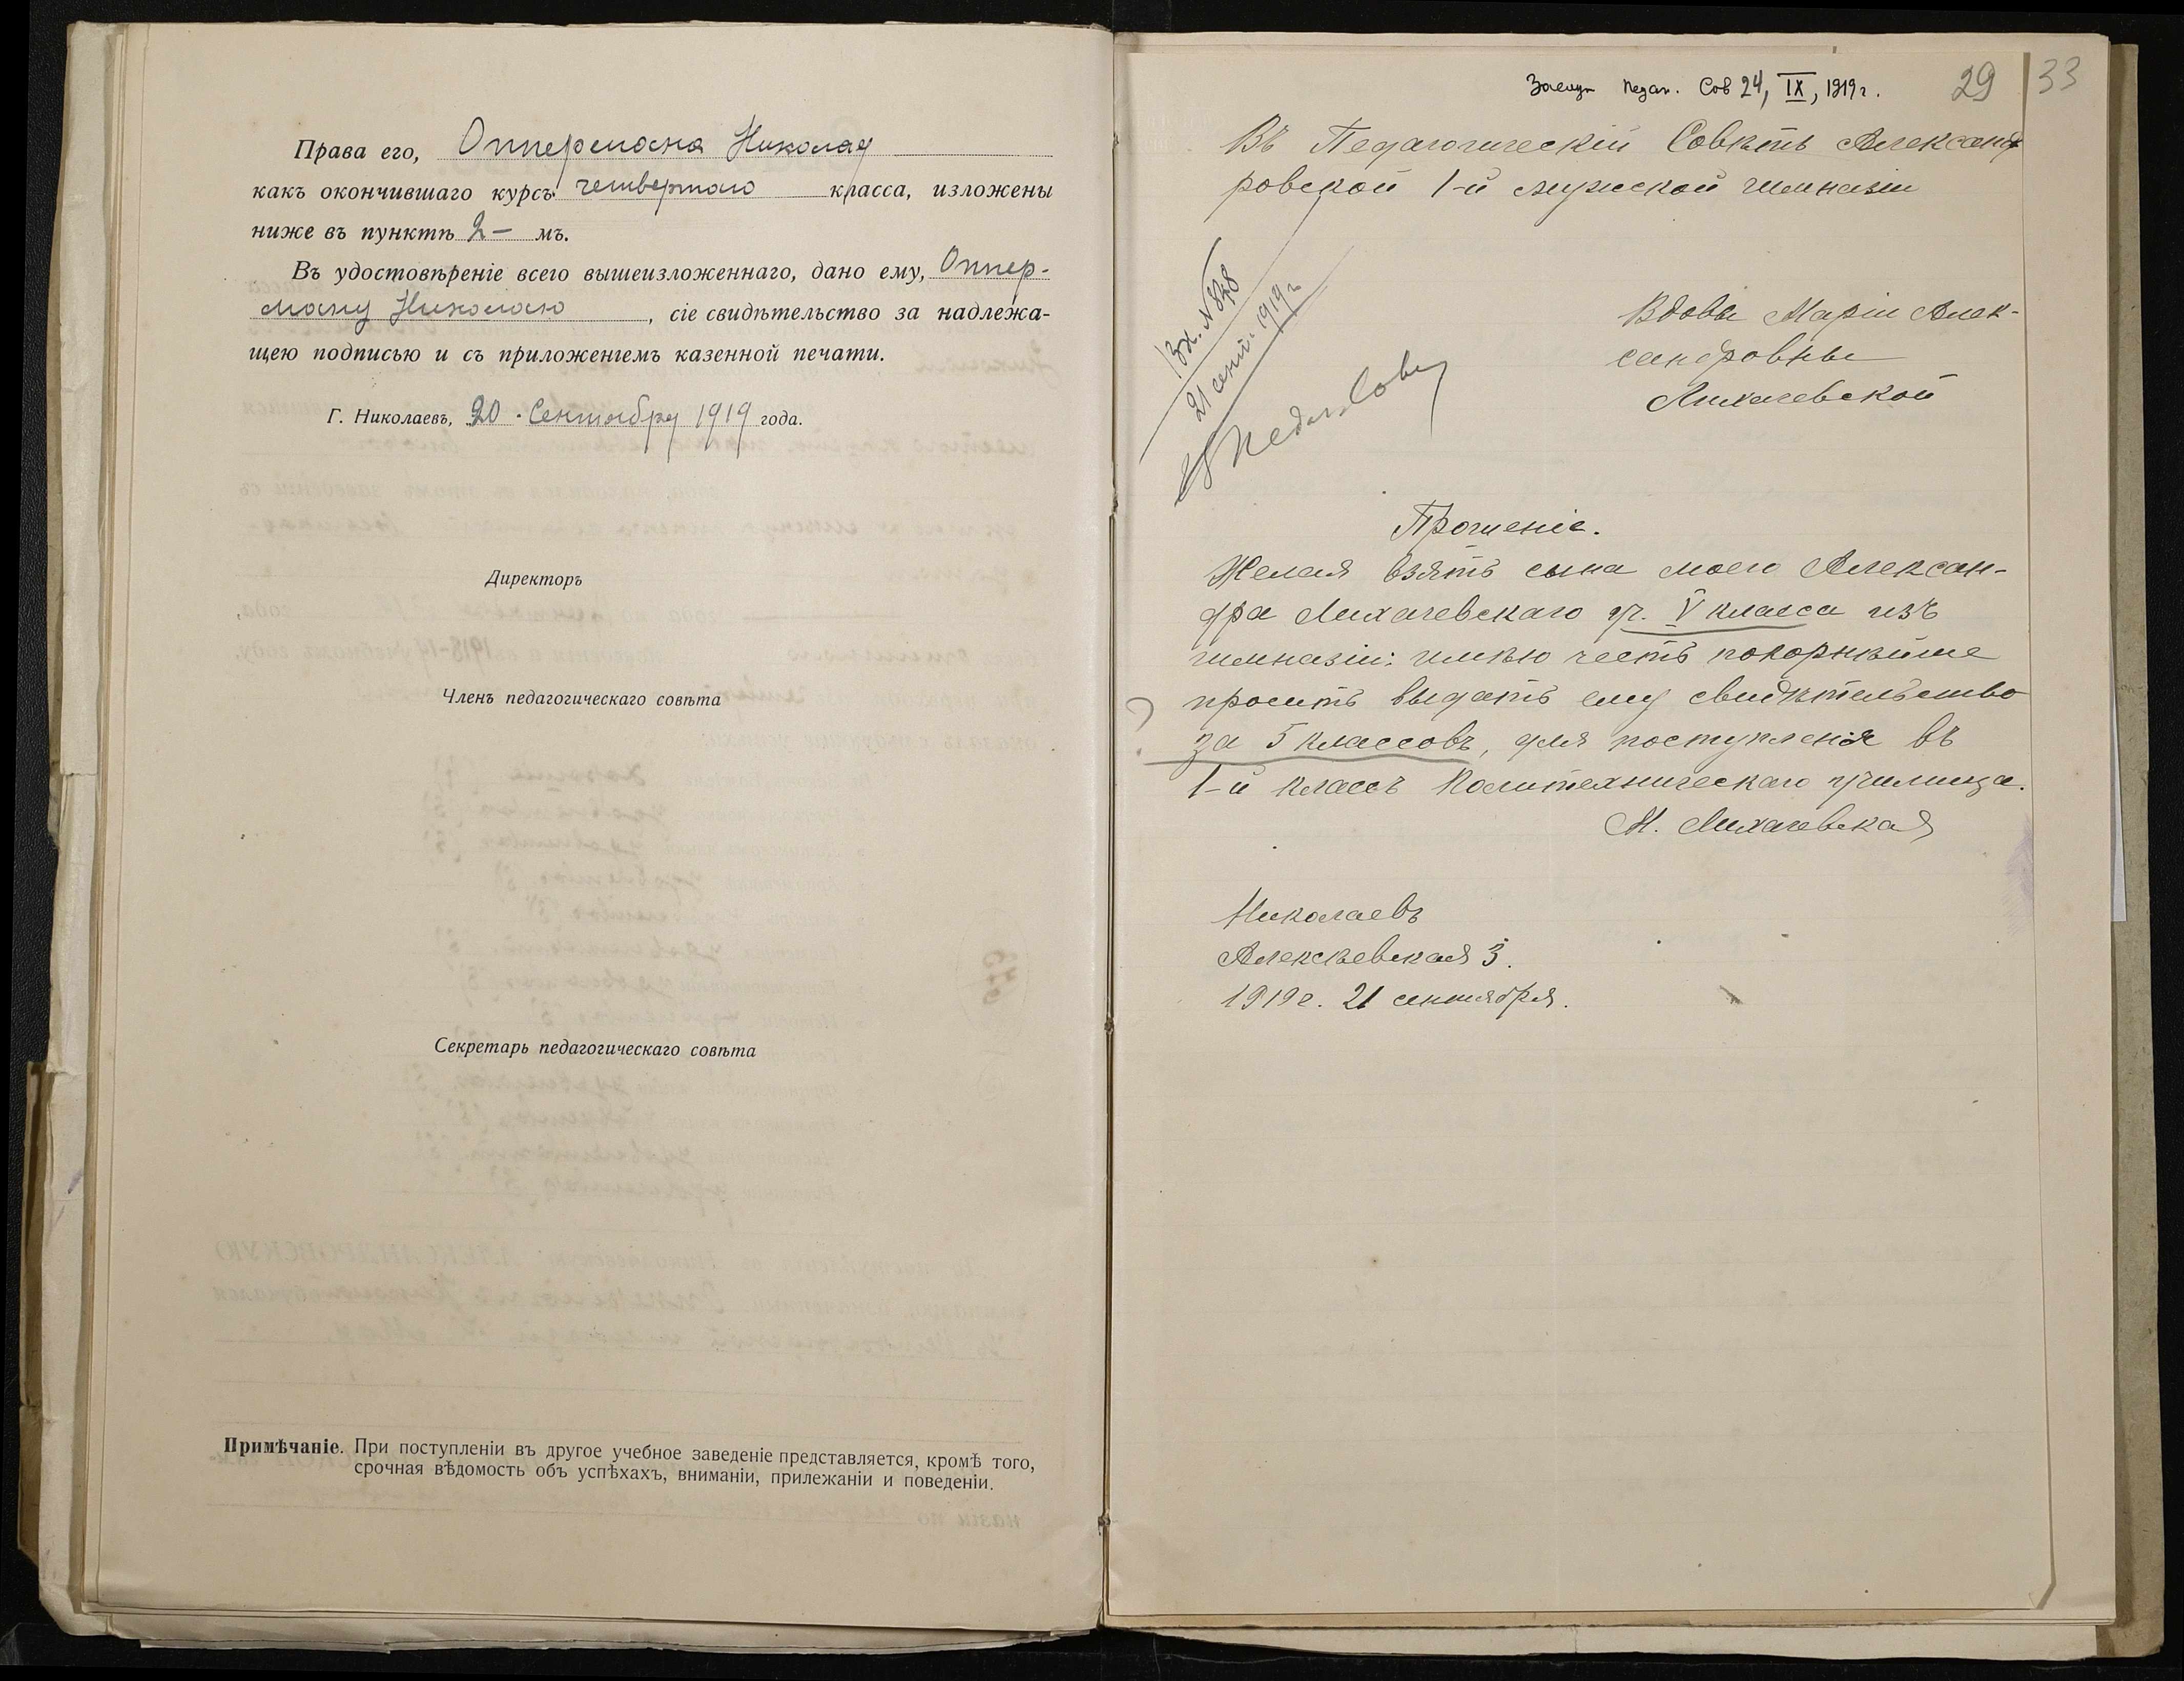 Права его, Оппермана Николая
какъ окончившаго курсъ четвертаго класса, изложены
ниже въ пунктѣ 2 — мъ.
Въ удостовѣреніе всего вышеизложеннаго, дано ему, Оппер-
ману Николаю, сіе свидѣтельство за надлежа-
щею подписью и съ приложеніемъ казенной печати.
Г. Николаевъ, 20 Сентября 1919 года.
Директоръ
Членъ педагогическаго совѣта
Секретарь педагогическаго совѣта
Примѣчаніе. При поступленіи въ другое учебное заведеніе представляется, кромѣ того,
срочная вѣдомость объ успѣхахъ, вниманіи, прилежаніи и поведеніи.
Педаг. Сов 24, IX, 1919 г.
29 33
Въ Педагогическій Совѣтъ Александ
ровской 1-й мужской гимназіи
Вх. N 848
21 сент. 1919 г.
В Педаг. Совет
Вдовы Маріи Алек-
сандровны
Лихачевской
Прошеніе.
Желая взять сына моего Алексан-
дра Лихачевскаго уч. V класса изъ
гимназіи: имѣю честь покорнѣйше
просить выдать ему свидѣтельство
за 5 классовъ, для поступленія въ
1-й классъ Политехническаго училища.
М. Лихачевская
Николаевъ
Алексѣевская 3.
1919 г. 21 сентября.